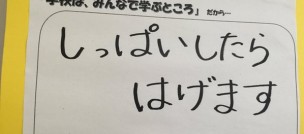 学校は、みんなで学ぶところ」だから…
しっぱいしたら
はげます